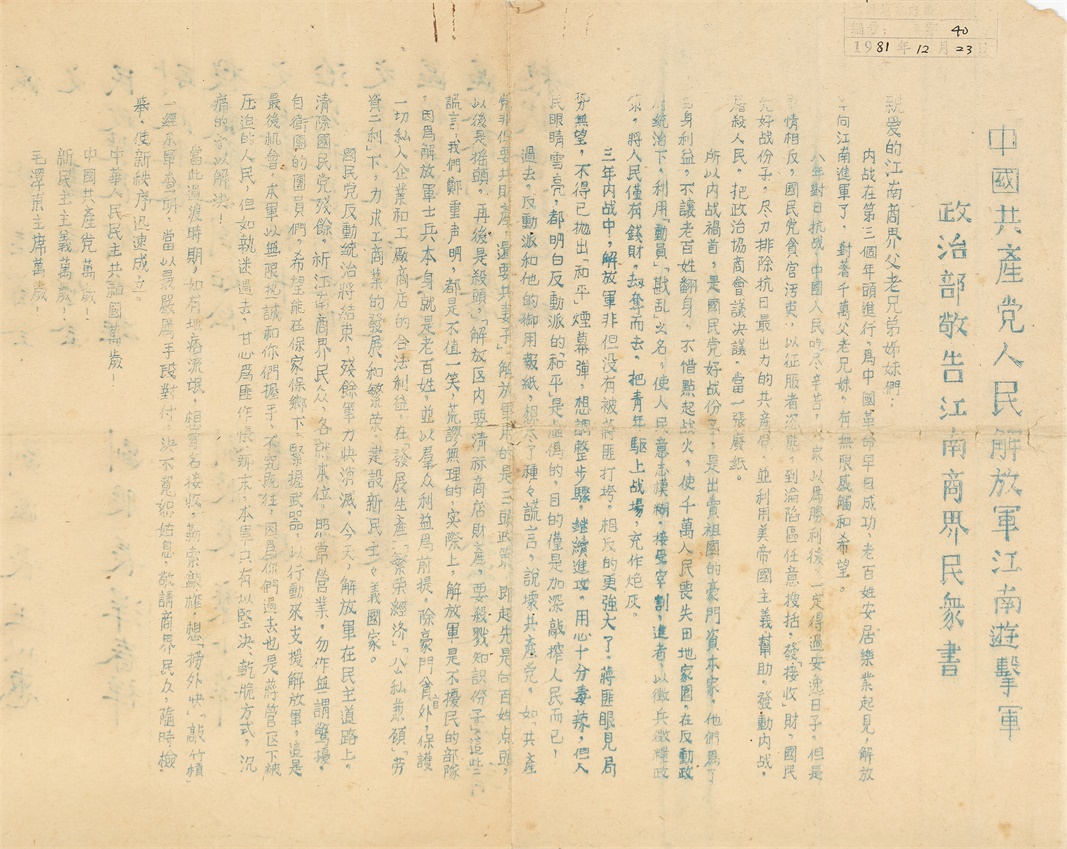 40
1981年12月23日
中國共產党人民解放軍江南遊擊軍
政治部敬告江南商界民衆書
親爱的江南商界父老兄弟姊妹們：
內战在第三個年頭進行，爲中國革命早日成功，老百姓安居樂業起見，解放
向江南進軍了，對著千萬父老兄妹，有無限感觸和希望。
八年對日抗战，中國人民吃尽辛苦，以爲勝利後，一定得過安逸日子，但是
情相反，國民党貪官汚吏，以征服者姿態，到淪陷區任意搜括，發「接收」財，國民
党好战份子，尽力排除抗日最出力的共產党，並利用美帝國主義幫助，發動內战，
殺人民，把政治協商會議決議，當一張廢紙。
所以內战禍首，是國民党好战份子，是出賣祖國的豪門資本家，他們爲了
身利益，不讓老百姓翻身，不惜點起战火，使千萬人民喪失田地家園，在反動政
統治下，利用「動員」「戡乱」之名，使人民意志模糊，接受宰割，進者，以徵兵徵糧政
策，將人民僅有錢財，刼奪而去，把青年駆上战場，充作炮灰。
三年內战中，解放軍非但没有被蔣匪打垮，相反的更強大了。蔣匪眼見局
势無望，不得已抛出「和平」煙幕彈，想調整步驟，継續進攻，用心十分毒辣，但人
民眼睛雪亮，都明白反動派的「和平」是虛僞的，目的僅是加深敲搾人民而已！
過去，反動派和他的御用報紙，想尽了種々謊言，說壞共產党。如，共產
党非但要共財產，還要共妻子」「解放軍用的是三頭政策，即起先是向百姓点頭，
以後是摇頭，再後是殺頭，「解放区內要清祘商店財產，要殺戮知識份子」這些
謊言，我們鄭重声明，都是不值一笑，荒謬無理的，实際上，解放軍是不擾民的部隊
，因爲解放軍士兵本身，就是老百姓，並以羣众利益爲前提，除豪門貪官外，保護
一切私人企業和工廠商店的合法利益，在「發展生產」「繁荣經济」「公私兼顧」「劳
資二利」下，力求工商業的發展和繁荣，建設新民主主義國家。
國民党反動統治將結束，殘餘軍力快消滅，今天，解放軍在民主道路上，
清除國民党殘餘，祈江南商界民众，各就本位，照常營業，勿作無謂驚擾，
自衛團的團員們，希望能在保家保鄉下，緊握武器，以行動來支援解放軍，這是
最後機會，本軍以無限热誠和你們握手，不究既往，因爲你們過去也是蔣管区下被
压迫的人民，但如執迷過去，甘心爲匪作倀，那末，本軍只有以堅決，乾脆方式，沉
痛的予以解決！
當此過渡時期，如有地痞流氓，想冒名接收，勒索敲詐，想「撈外快」「敲竹槓」
一經本軍查明，當以最嚴厲手段對付，決不寬恕姑息，敬請商界民众隨時檢
舉，使新秩序迅速成立。
中華人民民主共和國萬歲！
中國共產党萬歲！
新民主主義萬歲！
毛澤東主席萬歲！